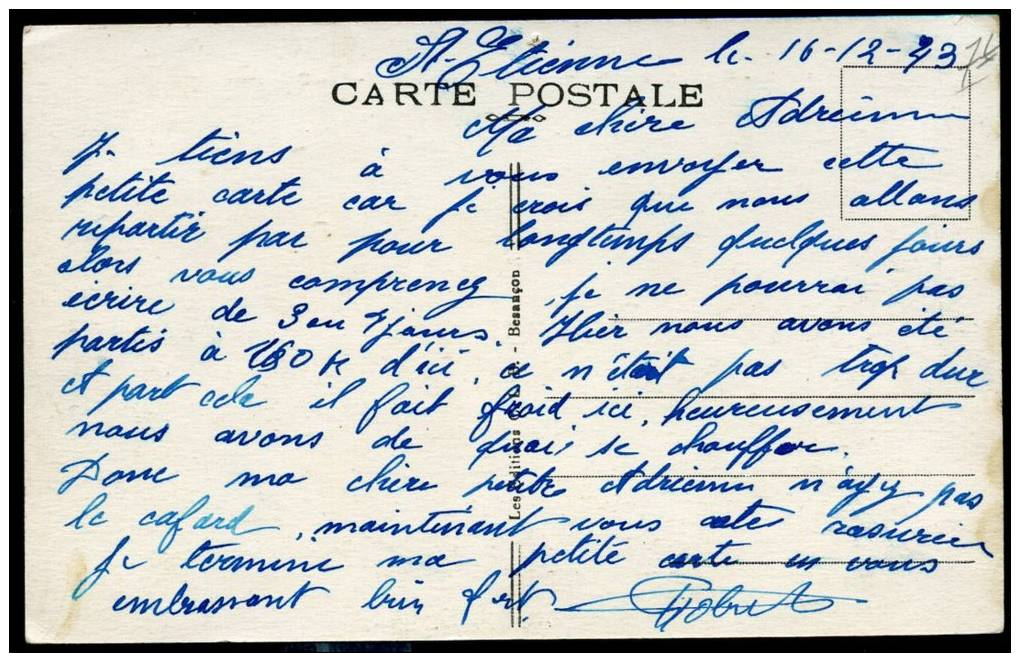 St-Etienne le 16-12-43
CARTE POSTALE
Ma chere Adrienne
Je tiens à vous envoyer cette
petite carte car je crois que nous allons
repartir par pour longtemps quelques jours
alors vous comprenez je ne pourrai pas
ecrire de 3 ou 4 jours. Hier nous avons été
partis à 160 K d'ici, ce n'était pas trop dur
et part cela il fait froid ici, heureusement
nous avons de quoi se chauffer.
Donc ma chere petite Adrienne n'ayez pas
le cafard, maintenant vous etes rasurée
Je termine ma petite carte en vous
embrassant bien fort Robert
Les Editions - Besançon